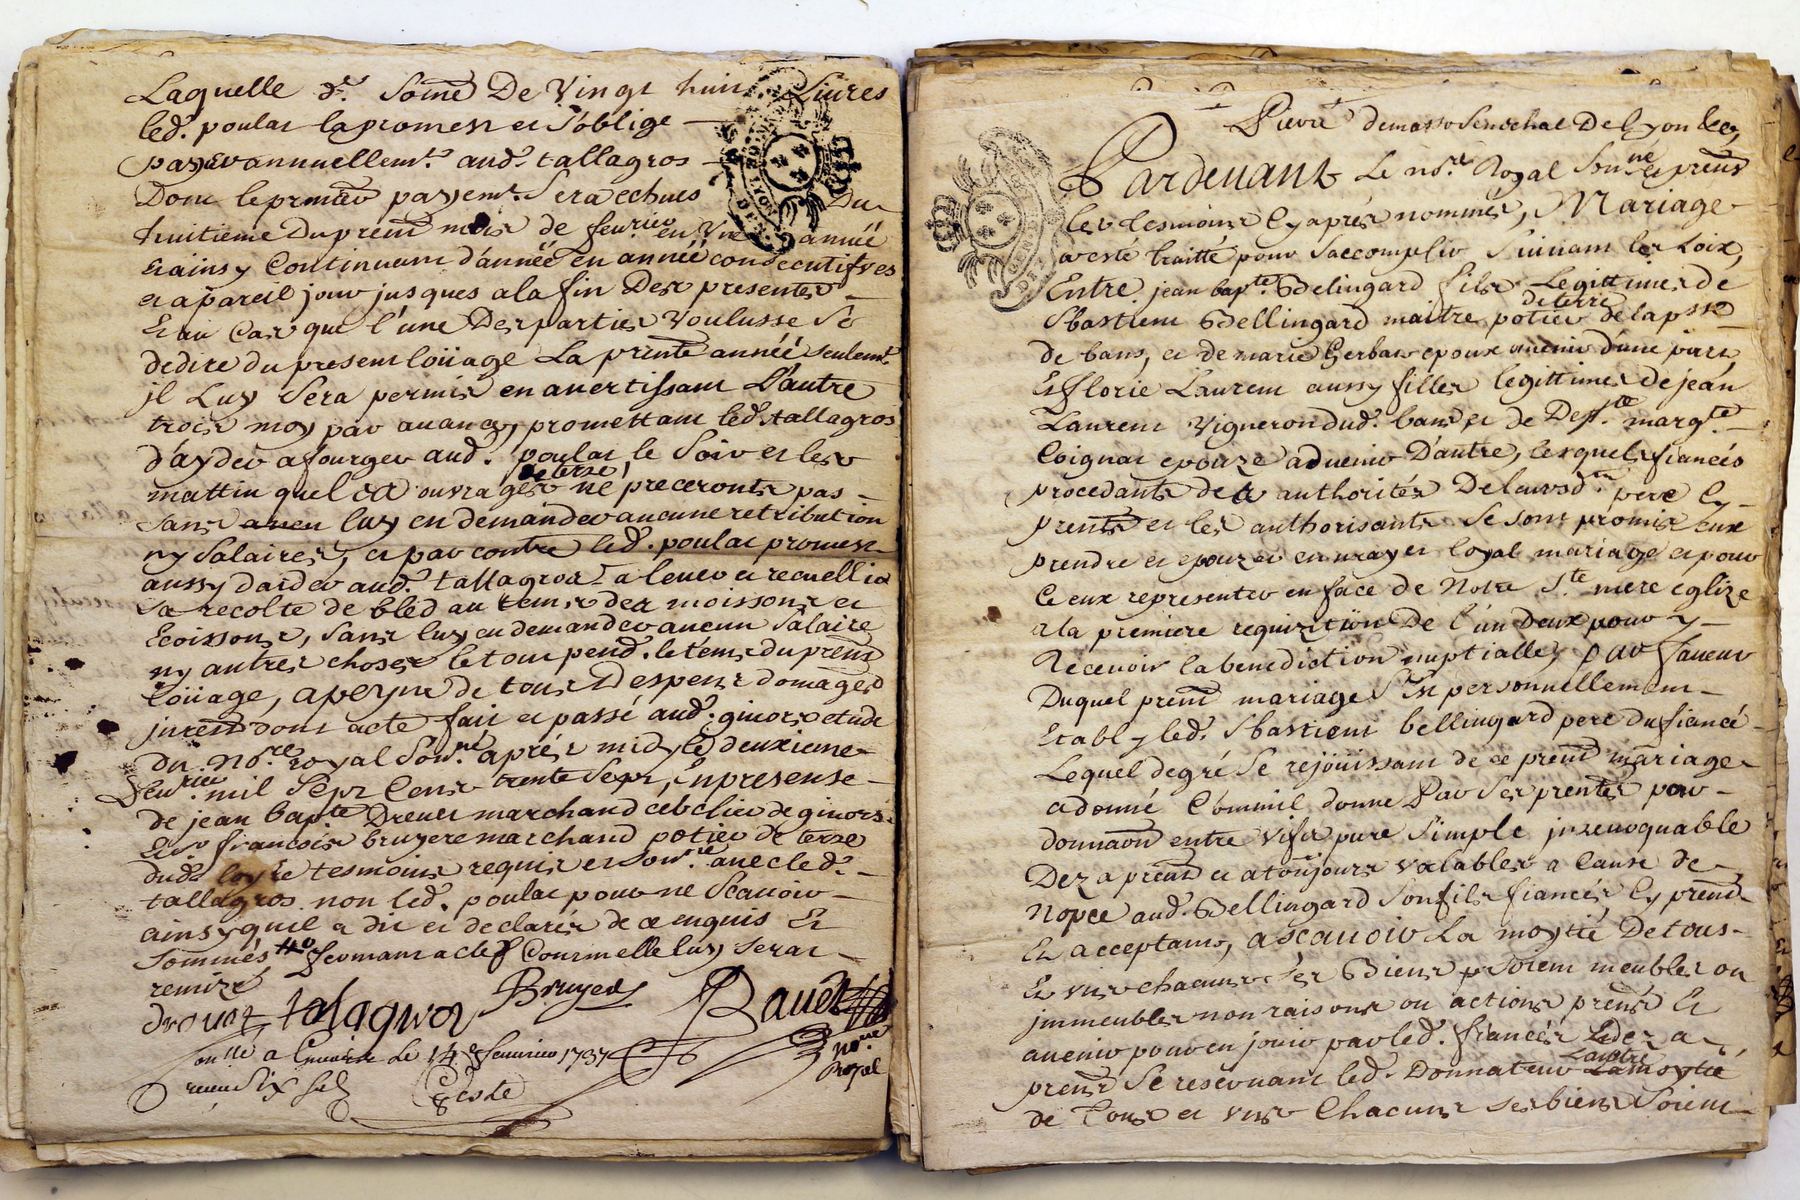 Laquelle d.e Some De Vingt huit Livres
led. poulat la promest et S'oblige
payer annuellemt. aud. tallagros
Dont le premier payemt. Sera echus Du
huitieme Du prent mois de feuvrier en Vne année
Et ainsy Continuant d'année en année consecutifves
et a pareil jour jusques a la fin Des presentes
Et au Cas que l'une Des parties Voulusse Se
dedire du present loüage La prente année seulemt.
jl Luy Sera permis en avertissant L'autre
trois moy par avance, promettant led. tallagros
d'ayder a fourger aud. poulat le Soir et les
de terre
mattin quel ouvrages ne preceronts pas
Sans luy en demander aucune retribution
ny Salaires, et par contre led. poulat promest
aussy d'aider aud. tallagros a lever et recuellir
Sa recolte de bled au tems des moissons et
Ecoissons, Sans luy en demander aucun Salaire
ny autres choses le tout pend. le tems du prent
loüage, a peyne de tous Despens domages
jnrests dont acte fait et passé aud. givors etude
du Nore. royal Son.né aprés midy le deuxieme
feuvrier mil Sept Cent trente Sept, En presense
de jean bapte Drevet marchand de givors
Et Sr francois bruyere marchand potier de terre
dud. loyre tesmoins requis et Son.né avec led.
tallagros non led. poulat pour ne Scavoir
ainsy quil a dit et declarés de ce enquis Et
Sommés Courmelle luy Serat
remize
drouet talagros Bruyere Ravet
no.re
Royal
Con.llé a Givors le 14e feuvrier 1737
receu Six sols
Coste
Pierre demasso Senechal De Lyon
Pardevant Le no.re Royal Son.né et prents
les tesmoins Cy aprés nommés, Mariage
a esté traitté pour S'accomplir Suivant les Loix,
Entre jean bapte. Bellingard fils Legittimes de
de terre
Sbastient Bellingard maitre potier de la psse
de bans, et de marie Gerbat epoux avenir d'une part,
Et florie Laurent aussy filles legittimes de jean
Laurent Vigneron dud. bans et de Deffte. margte.
Coignat epouze advenir D'autre, lesquels fiancés
procedants de authorités De leursd. pere Cy
prents et les authorisants Se sont promis eux
prendre et epouzer en vray et loyal mariage et pour
Ce eux representer en face de Notre Ste. mere eglize
a la premiere requizition De l'un Deux pour y
Recevoir la benediction nuptialle, par faveur
Duquel prent mariage S'est personnellement
Etably led. Sbastient bellingard pere du fiancé
Lequel de gré Se rejoüissant de ce prent mariage
a donné Comme il donne Par Ses prentes par
donnaon entre vifs pure Simple jrrevoquable
Dez a prent et a toujours valables a Cause de
Nopce aud. Bellingard Son fils fiancés Cy prent
Et acceptant, a Scavoir La moytié De tous
Et vns chacuns Ses Biens Soient meubles ou
jmmeubles non raisons ou actions prents Et
avenir pour en jouir par led. fiancés dez a
prent Se reservant led. Donnateur
L'autre
Lamoytié
de Tous et vns Chacuns Ses biens Soient